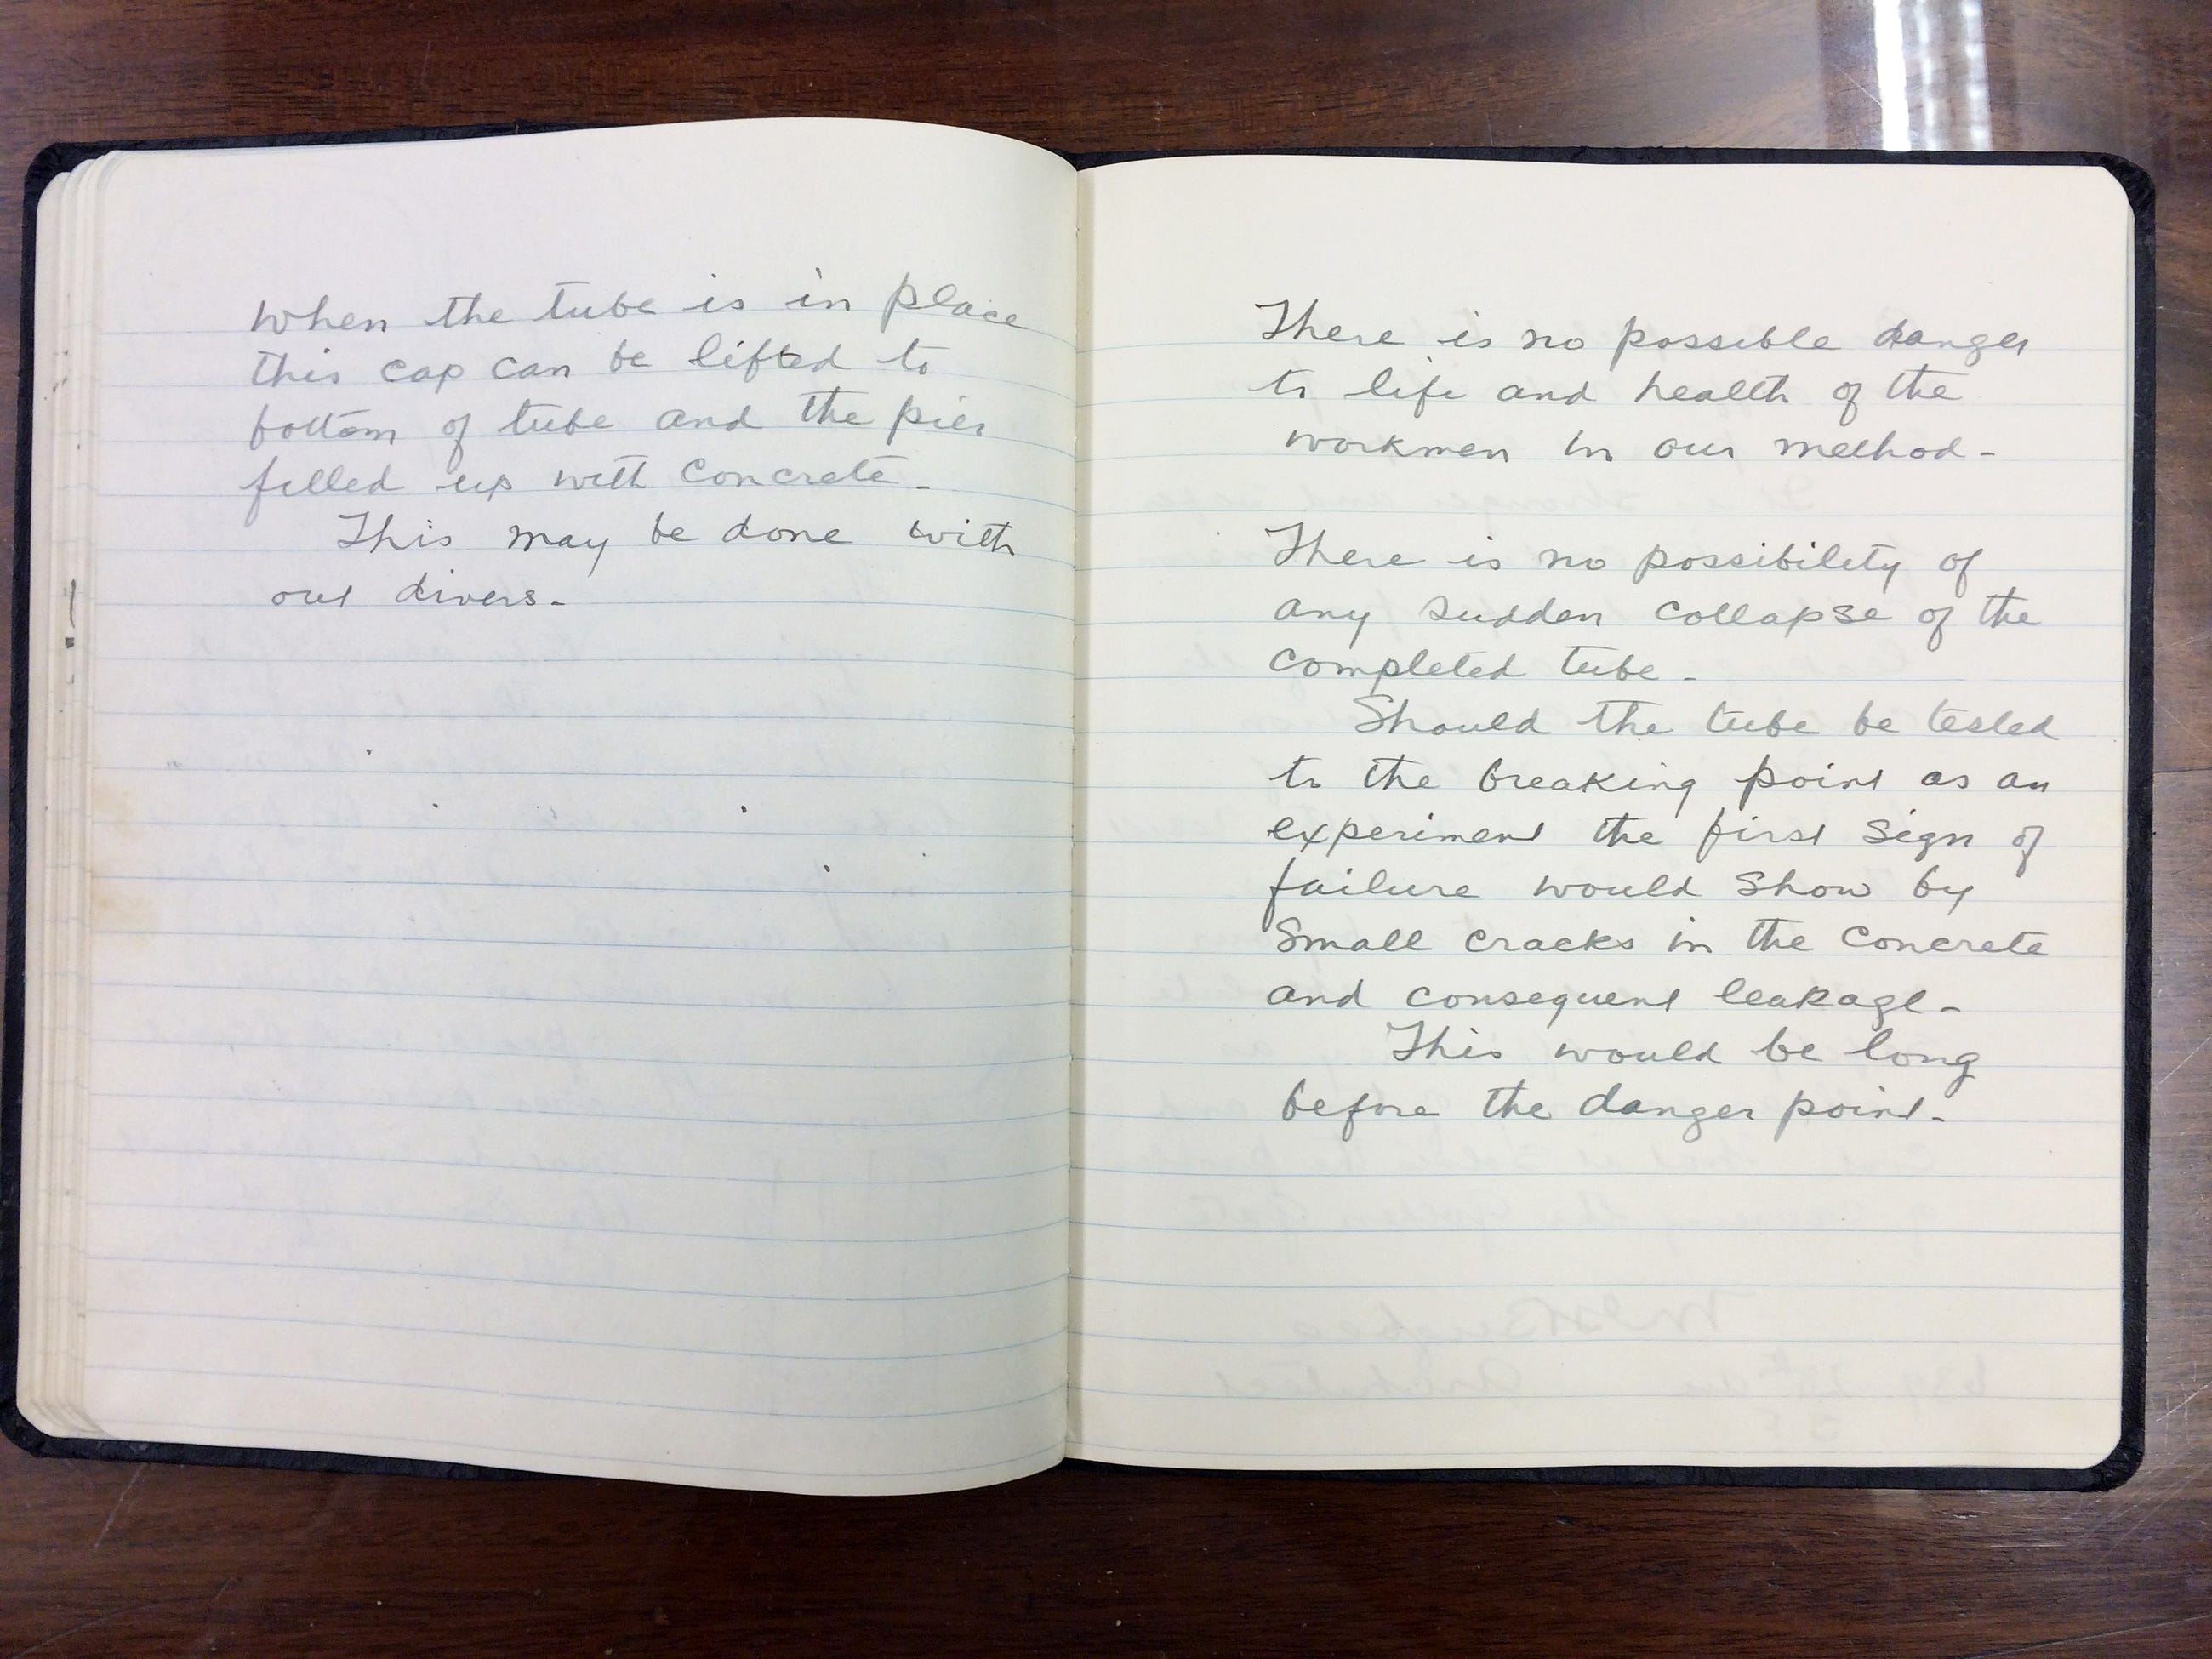 When the tube is in place
this cap can be lifted to
bottom of tube and the pier
filled up with concrete -
This may be done with
out divers -
There is no possible danger
to life and health of the
workmen in our method -
There is no possibility of
any sudden collapse of the
completed tube -
Should the tube be tested
to the breaking point as an
experiment the first sign of
failure would show by
small cracks in the concrete
and consequent leakage -
This would be long
before the danger point -